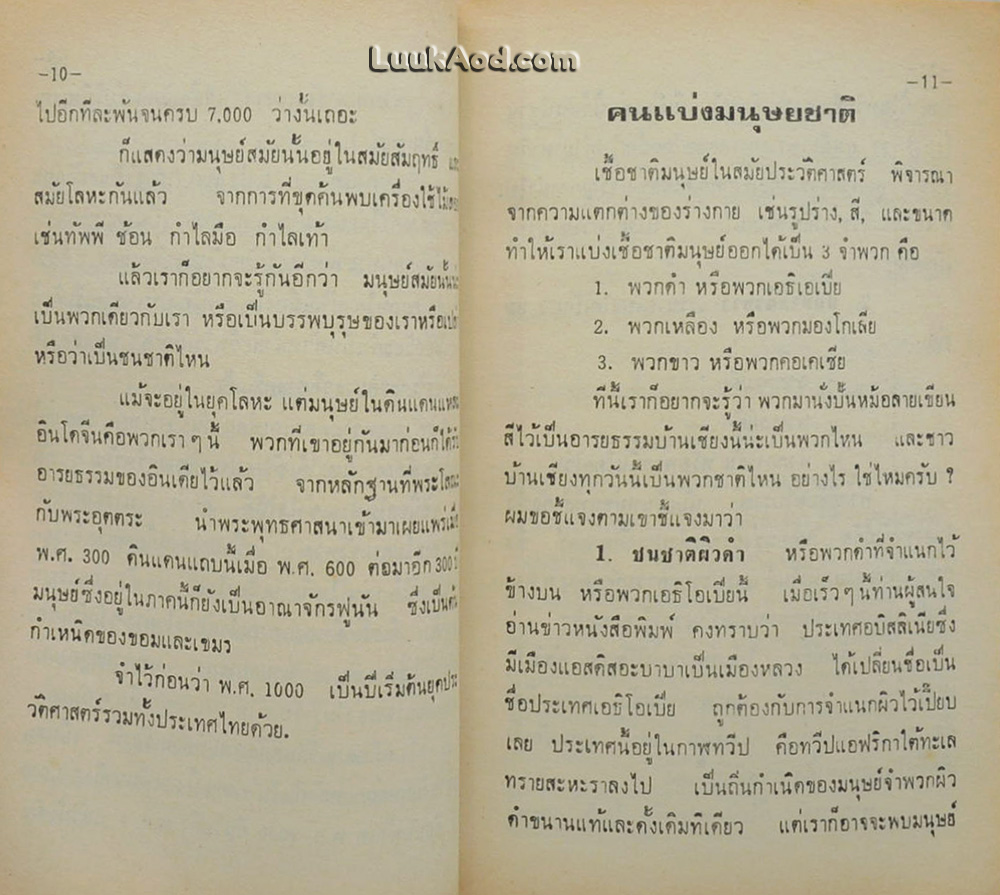 LuukAod.com
-10-
ไปอีกทีละพันจนครบ 7.000 ว่างั้นเถอะ
ก็แสดงว่ามนุษย์สมัยนั้นอยู่ในสมัยสัมฤทธิ์
สมัยโลหะกันแล้ว จากการที่ขุดค้นพบเครื่องใช้
เช่นทัพพี ช้อน กำไลมือ กำไลเท้า
แล้วเราก็อยากจะรู้กันอีกว่า มนุษย์สมัยนั้น
เป็นพวกเดียวกับเรา หรือเป็นบรรพบุรุษของเราหรือ
หรือว่าเป็นชนชาติไหน
แม้จะอยู่ในยุคโลหะ แต่มนุษย์ในดินแดน
อินโดจีนคือพวกเรา ๆ นี้ พวกที่เขาอยู่กันมาก่อนก็ได้
อารยธรรมของอินเดียไว้แล้ว จากหลักฐานที่
กับพระอุตตระ นำพระพุทธศาสนาเข้ามาเผยแพร่
พ.ศ. 300 ดินแดนแถบนี้เมื่อ พ.ศ. 600 ต่อมาอีก 300
มนุษย์ซึ่งอยู่ในภาคนี้ก็ยังเป็นอาณาจักรฟูนัน ซึ่งเป็น
กำเหนิดของขอมและเขมร
จำไว้ก่อนว่า พ.ศ. 1000 เป็นปีเริ่มต้นยุคประ
วัติศาสตร์รวมทั้งประเทศไทยด้วย.
-11-
คนแบ่งมนุษยชาติ
เชื้อชาติมนุษย์ในสมัยประวัติศาสตร์ พิจารณา
จากความแตกต่างของร่างกาย เช่นรูปร่าง, สี, และขนาด
ทำให้เราแบ่งเชื้อชาติมนุษย์ออกได้เป็น 3 จำพวก คือ
1. พวกดำ หรือพวกเอธิเอเปีย
2. พวกเหลือง หรือพวกมองโกเลีย
3. พวกขาว หรือพวกคอเคเซีย
ทีนี้เราก็อยากจะรู้ว่า พวกมานั่งปั้นหม้อลายเขียน
สีไว้เป็นอารยธรรมบ้านเชียงนี้น่ะเป็นพวกไหน และชาว
บ้านเชียงทุกวันนี้เป็นพวกชาติไหน อย่างไร ใช่ไหมครับ ?
ผมขอชี้แจงตามเขาชี้แจงมาว่า
1. ชนชาติผิวดำ หรือพวกดำที่จำแนกไว้
ข้างบน หรือพวกเอธิโอเปียนี้ เมื่อเร็ว ๆ นี้ท่านผู้สนใจ
อ่านข่าวหนังสือพิมพ์ คงทราบว่า ประเทศอบิสสิเนียซึ่ง
มีเมืองแอสดิสอะบาบาเป็นเมืองหลวง ได้เปลี่ยนชื่อเป็น
ชื่อประเทศเอธิโอเปีย ถูกต้องกับการจำแนกผิวไว้เปี๊ยบ
เลย ประเทศนี้อยู่ในกาฬทวีป คือทวีปแอฟริกาใต้ทะเล
ทรายสะหะราลงไป เป็นถิ่นกำเนิดของมนุษย์จำพวกผิว
ดำขนานแท้และดั้งเดิมทีเดียว แต่เราก็อาจจะพบมนุษย์